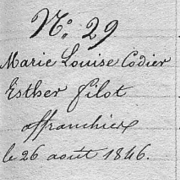 N.º 29
Marie Louise Codier
Esther filot
affranchies
le 26 août 1846.